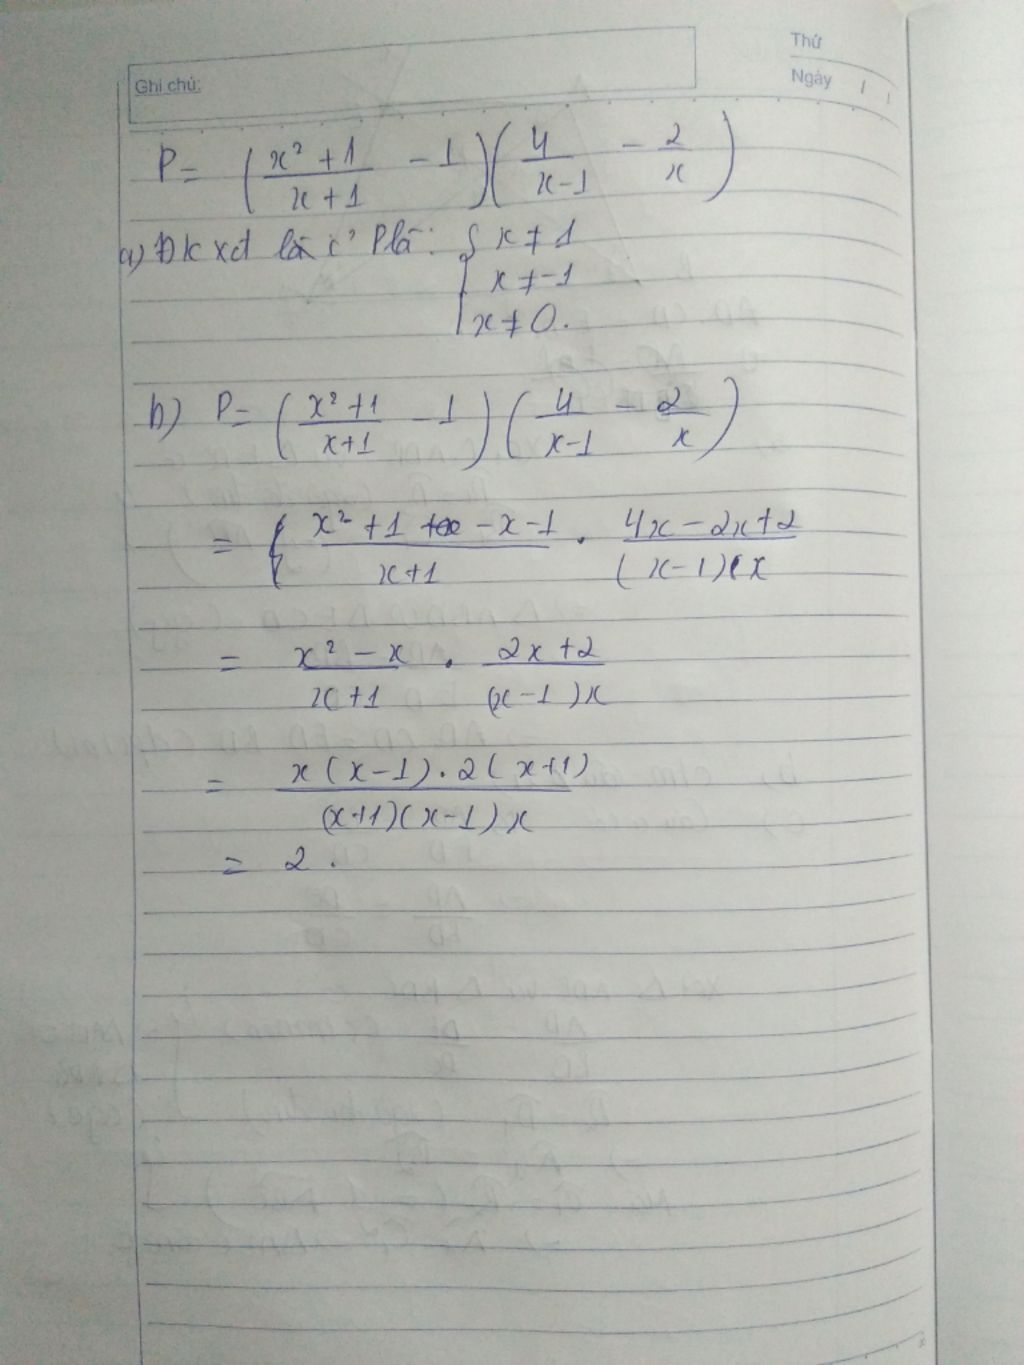 Thứ
Ghi chú:
Ngày / /
P = ( (x² + 1)/(x + 1) - 1 ) ( 4/(x-1) - 2/x )
a) ĐK xđ P là: { x ≠ 1
x ≠ -1
x ≠ 0.
b) P = ( (x² + 1)/(x+1) - 1 ) ( 4/(x-1) - 2/x )
= { (x² + 1 - x - 1)/(x+1) . (4x - 2x + 2)/((x-1)x
= (x² - x)/(x+1) . (2x + 2)/((x-1)x
= (x(x-1).2(x+1))/((x+1)(x-1)x
= 2.